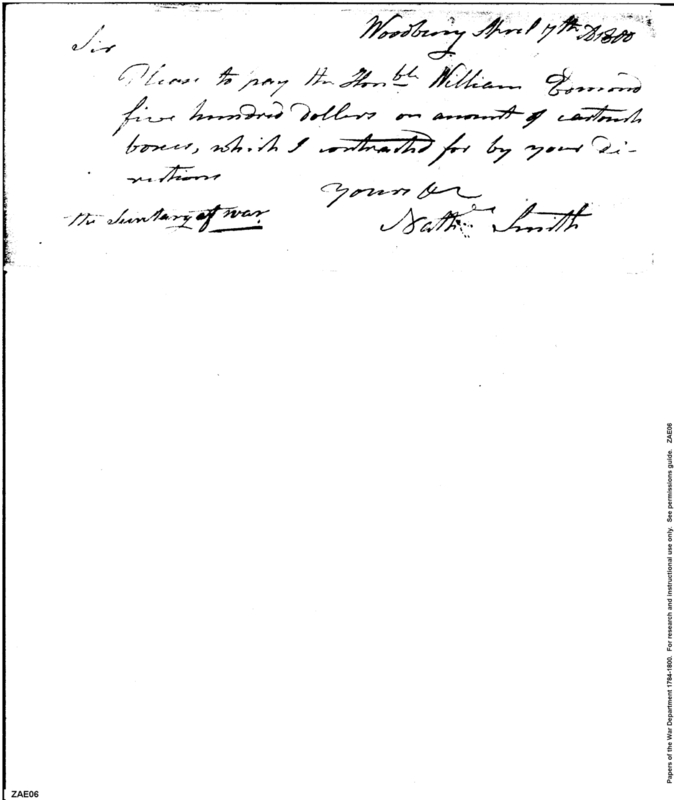 Woodbury April 7th AD 1800
Sir
Please to pay the Honble William Edmond
five hundred dollars on amount of cartouch
boxes, which I contracted for by your di-
rections
Yours &c
Nathl Smith
the Secretary of war
Papers of the War Department 1784-1800. For research and instructional use only. See permissions guide. ZAE06
ZAE06